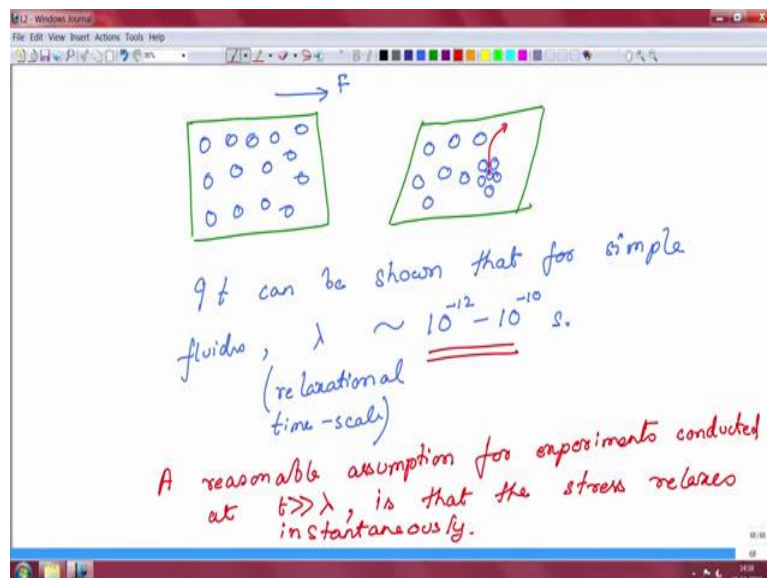 L2 - Windows Journal
File Edit View Insert Actions Tools Help
F
It can be shown that for simple
fluids, λ ~ 10⁻¹² - 10⁻¹⁰ s.
(relaxational
time-scale)
A reasonable assumption for experiments conducted
at t>>λ, is that the stress relaxes
instantaneously.
68/68
68
14:58